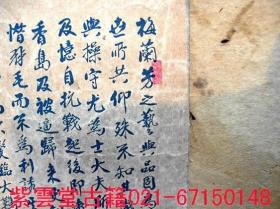 梅蘭芳之藝與品固為
世所共仰殊不知
與操守尤為士大夫
及憶自抗戰起後即
香島及被逼歸來
惜蓄毛而不為利誘
臨大難
紫雲堂古籍021-67150148